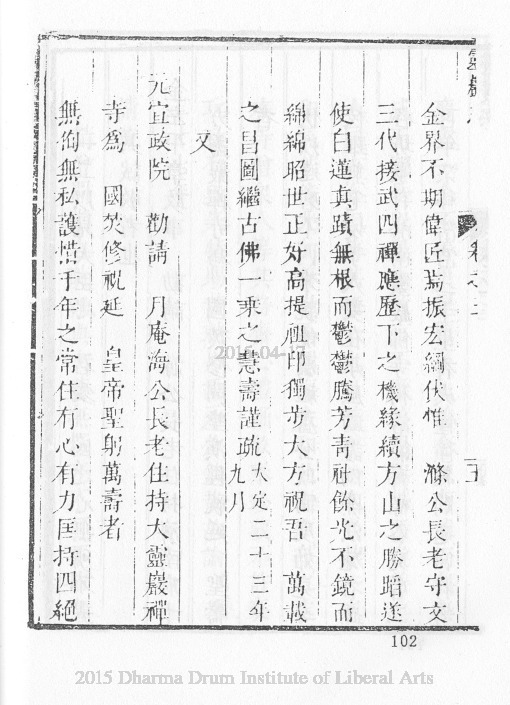 金界不期偉匠焉振宏綱伏惟　滌公長老守文
三代接武四禪應歷下之機緣續方山之勝蹈遂
使白蓮真蹟無根而鬱鬱騰芳青社餘光不鏡而
綿綿昭世正好高提祖印獨步大方祝吾　萬載
之昌圖繼古佛一乘之慧壽謹疏大定二十三年九月
又
元宣政院　勸請　月庵海公長老住持大靈巖禪
寺為　國焚修祝延　皇帝聖躬萬壽者
無徇無私護惜千年之常住有心有力匡持四絕
五
102
2015 Dharma Drum Institute of Liberal Arts